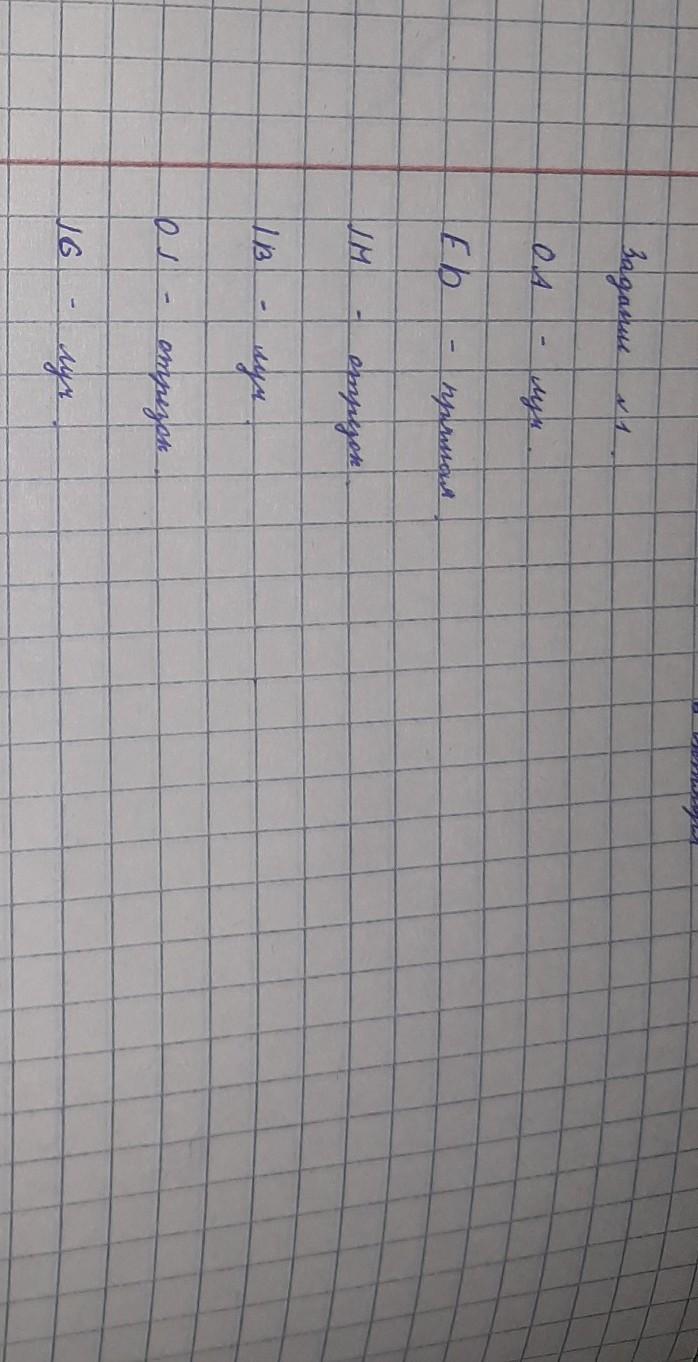 Задание №1.
OA - луч.
ED - прямая.
JM - отрезок.
JB - луч.
OJ - отрезок.
JG - луч.